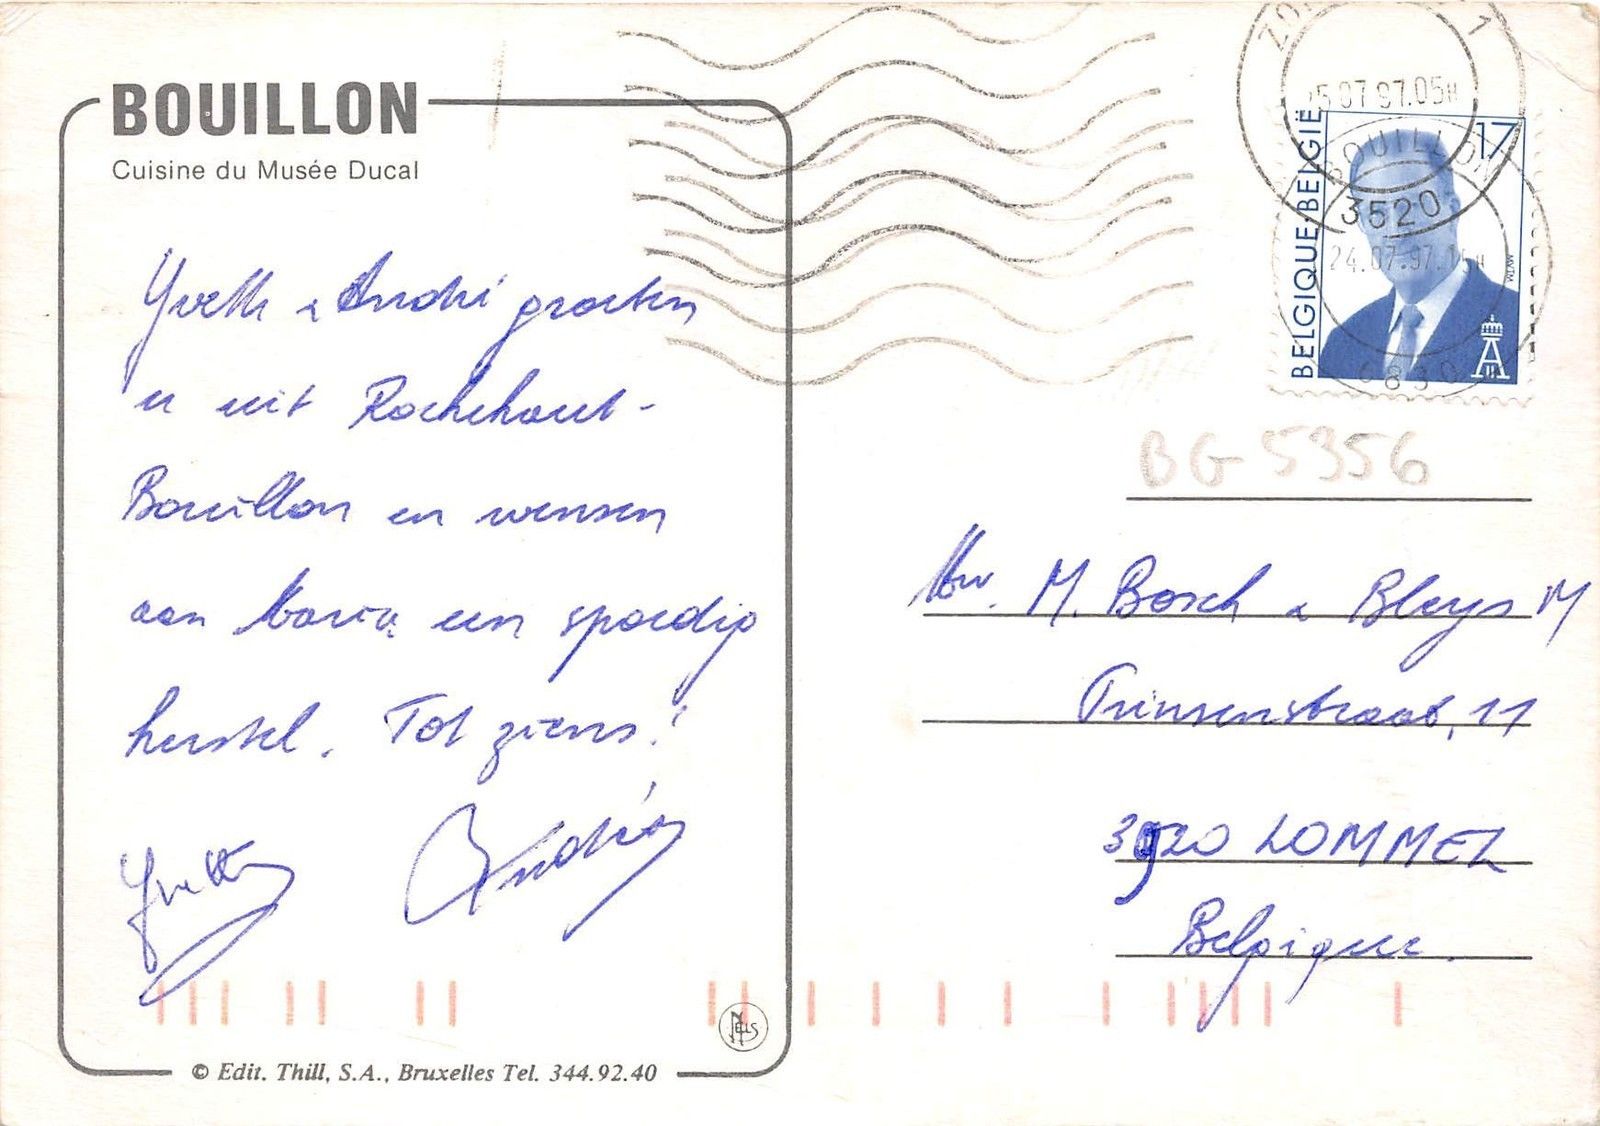 BOUILLON
Cuisine du Musée Ducal
Yvette & André groeten
u uit Rochehaut-
Bouillon en wensen
aan Maria een spoedig
herstel. Tot ziens!
Yvette André
© Edit. Thill, S.A., Bruxelles Tel. 344.92.40
NELS
1
25 07 97.05H
3520
BOUILLON
24.07.97.
6830
BELGIQUE·BELGIË
17
MVTM
BG 5356
Mw. M. Bosch & Bleys M
Prinsenstraat, 11
3920 LOMMEL
Belgique.